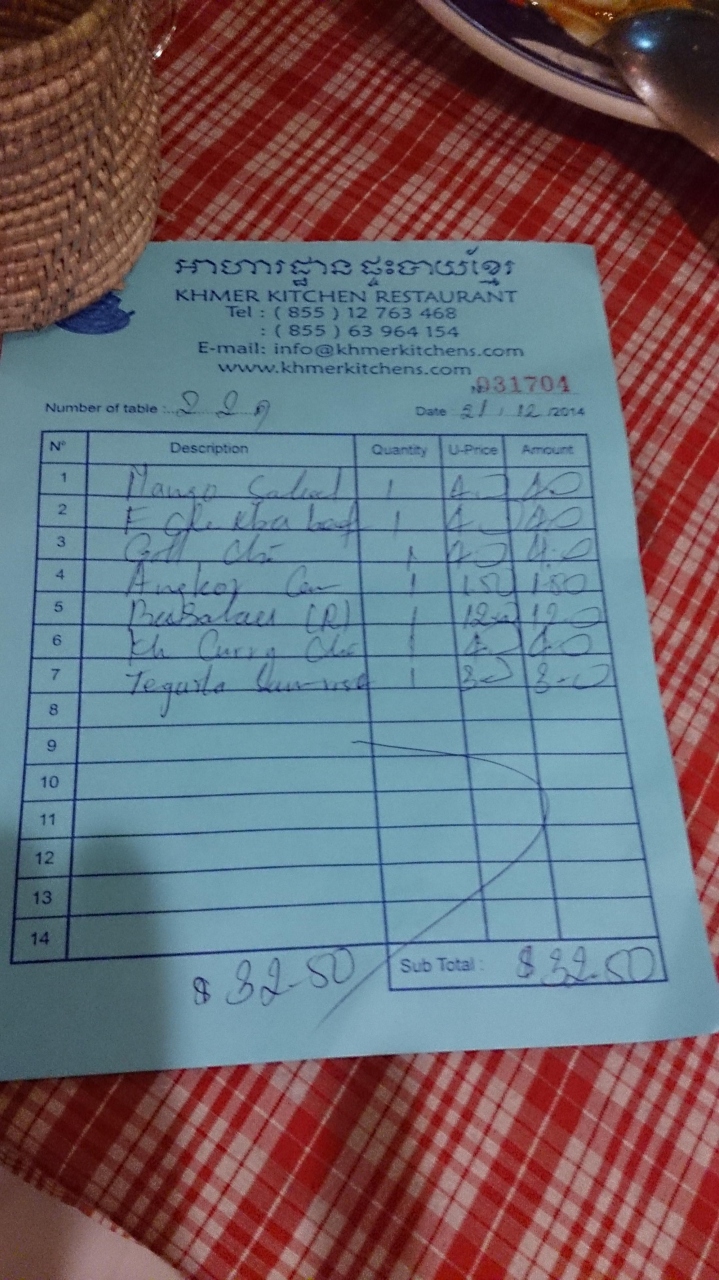 អាហារដ្ឋាន ផ្ទះបាយខ្មែរ
KHMER KITCHEN RESTAURANT
Tel : ( 855 ) 12 763 468
: ( 855 ) 63 964 154
E-mail: info@khmerkitchens.com
www.khmerkitchens.com
№031704
Number of table : 22 Date 21 / 12 /2014
N° Description Quantity U-Price Amount
1 Mango Salad 1 4.0 4.0
2 1 4.0 4.0
3 1 4.0 4.0
4 Angkor 1 1.50 1.50
5 (R) 1 12.0 12.0
6 Kh Curry 1 4.0 4.0
7 Tequila Sunrise 1 3.0 3.0
8
9
10
11
12
13
14
$ 32.50 Sub Total : $ 32.50